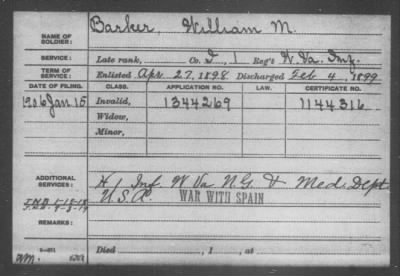 Barker, William M.
NAME OF
SOLDIER:
SERVICE: Late rank, Co. I, 1 Reg't W. Va. Inf.
TERM OF
SERVICE: Enlisted Apr 27, 1898 Discharged Feb 4, 1899
DATE OF FILING. CLASS. APPLICATION NO. LAW. CERTIFICATE NO.
1906 Jan 15 Invalid, 1344269 1144316
Widow,
Minor,
ADDITIONAL
SERVICES: H 1 Inf W Va N.G. & Med. Dept
U.S.A. WAR WITH SPAIN
REMARKS:
Died , 1 , at